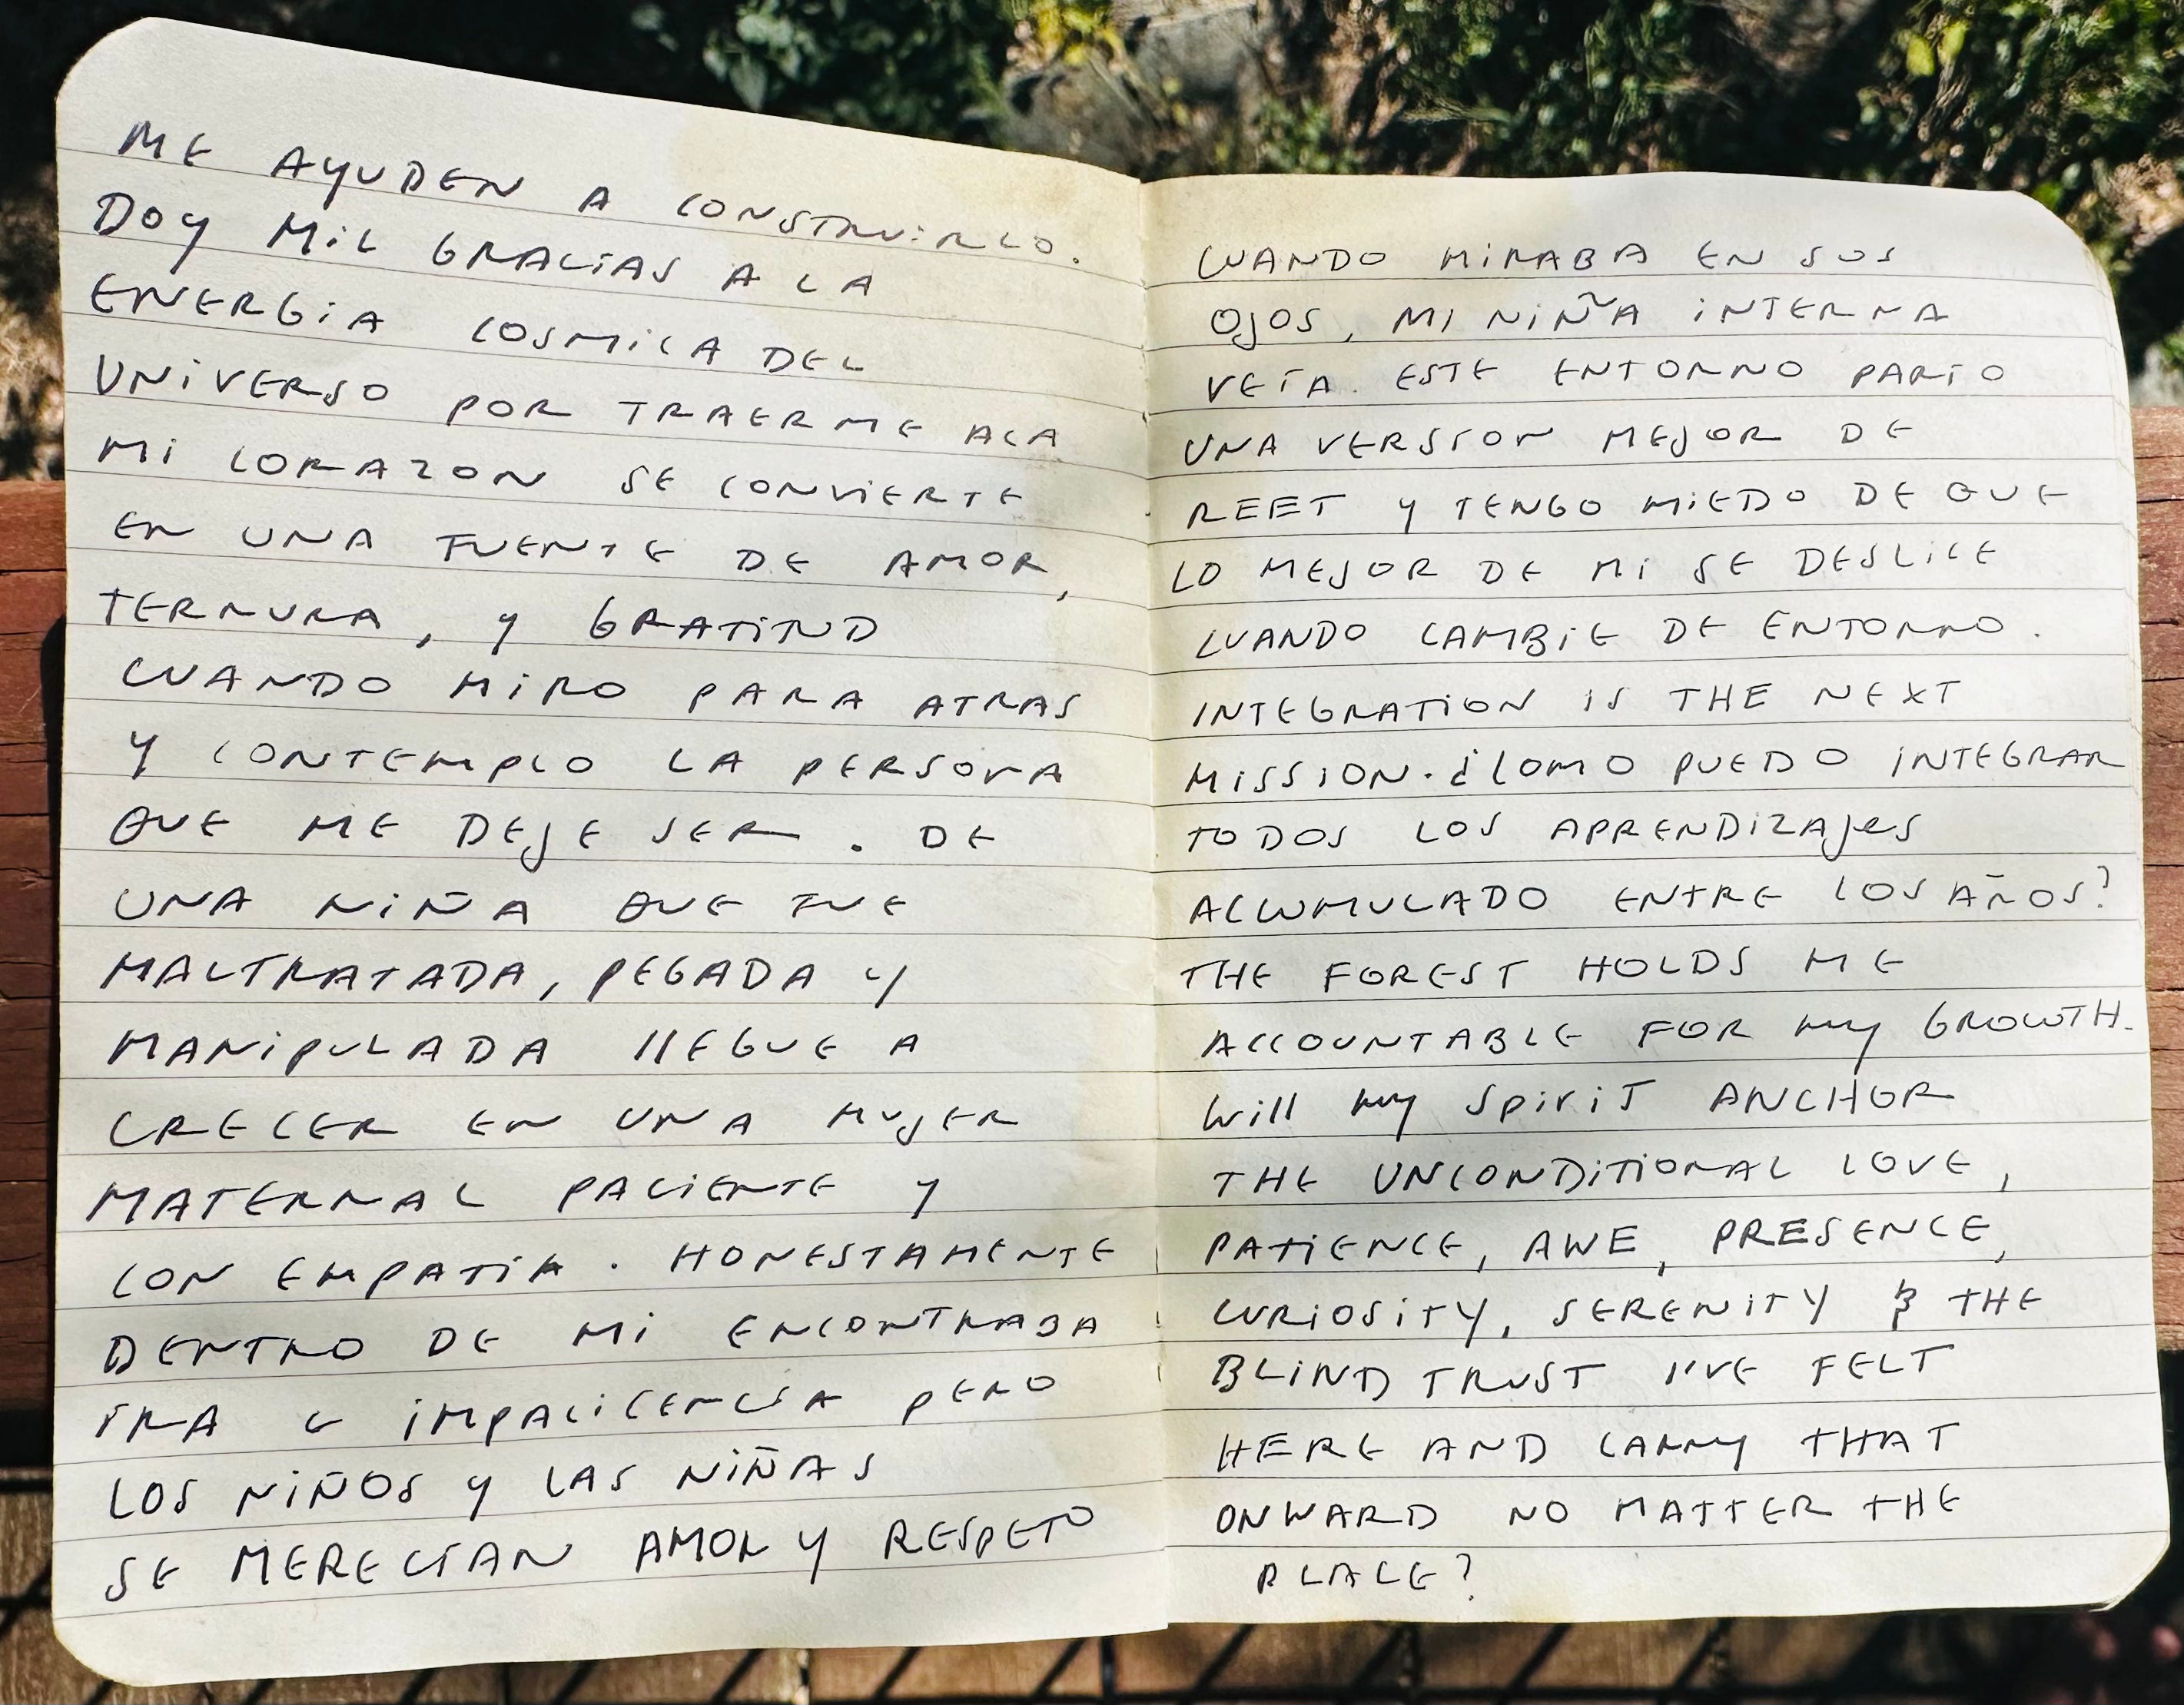 ME AYUDEN A CONSTRUIRLO.
DOY MIL GRACIAS A LA
ENERGIA COSMICA DEL
UNIVERSO POR TRAERME ACA
MI CORAZON SE CONVIERTE
EN UNA FUENTE DE AMOR,
TERNURA, Y GRATITUD
CUANDO MIRO PARA ATRAS
Y CONTEMPLO LA PERSONA
QUE ME DEJE SER. DE
UNA NIÑA QUE FUE
MALTRATADA, PEGADA Y
MANIPULADA llEGUE A
CRECER EN UNA MUJER
MATERNAL PACIENTE Y
CON EMPATÍA. HONESTAMENTE
DENTRO DE MI ENCONTRABA
IRA E IMPACICENCIA PERO
LOS NIÑOS Y LAS NIÑAS
SE MERECÍAN AMOR Y RESPETO
CUANDO MIRABA EN SUS
OJOS, MI NIÑA INTERNA
VEÍA. ESTE ENTORNO PARIO
UNA VERSION MEJOR DE
REET Y TENGO MIEDO DE QUE
LO MEJOR DE MI SE DESLICE
CUANDO CAMBIE DE ENTORNO.
INTEGRATION IS THE NEXT
MISSION. ¿COMO PUEDO INTEGRAR
TODOS LOS APRENDIZAJES
ACCUMULADO ENTRE LOS AÑOS?
THE FOREST HOLDS ME
ACCOUNTABLE FOR my GROWTH.
Will my SpiriT ANCHOR
THE UNCONDITIONAL LOVE,
PATIENCE, AWE, PRESENCE,
CURIOSITY, SERENITY & THE
BLIND TRUST I'VE FELT
HERE AND CARRY THAT
ONWARD NO MATTER THE
PLACE?